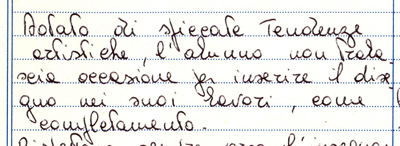 Dotato di spiccate tendenze
artistiche, l'alunno non trala
scia occasione per inserire il dise
gno nei suoi lavori, come
completamento.